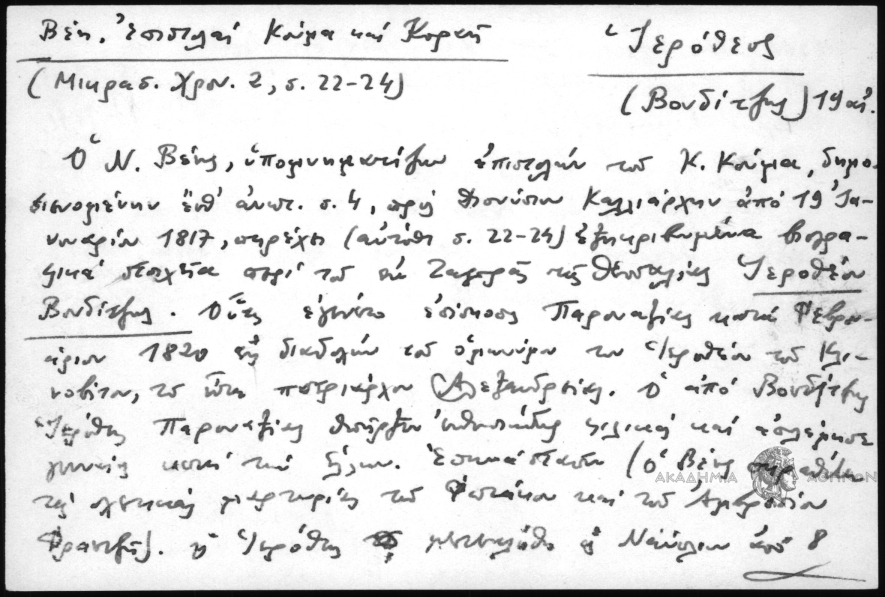 Βέη, Ἐπιστολαί Κούμα καί Κοραῆ
(Μικρασ. Χρον. 2, σ. 22-24)
Ἱερόθεος
(Βουδίτζης) 19 αἰ.
Ὁ Ν. Βέης, ὑπομνηματίζων ἐπιστολήν τοῦ Κ. Κούμα, δημο-
σιευομένην ἔνθ' ἀνωτ. σ. 4, πρός Διονύσιον Καλλιάρχην ἀπό 19 Ἰα-
νουαρίου 1817, παρέχει (αὐτόθι σ. 22-24) ἐξηκριβωμένα βιογρα-
φικά στοιχεῖα περί τοῦ ἐκ Ζαγορᾶς τῆς Θεσσαλίας Ἱεροθέου
Βουδίτζης. Οὗτος ἐγένετο ἐπίσκοπος Παροναξίας κατά Φεβρου-
άριον 1820 εἰς διαδοχήν τοῦ ὁμωνύμου του Ἱεροθέου τοῦ Κλι-
νοβίτου, τοῦ εἶτα πατριάρχου Ἀλεξανδρείας. Ὁ ἀπό Βουδίτζης
Ἱερόθεος Παροναξίας ὑπῆρξεν ἐνθουσιώδης φιλικός καί
κατά τήν (ὁ Βέης παραθέτει
τάς σχετικάς μαρτυρίας τοῦ Φωτάκου καί τοῦ Ἀμβροσίου
Φραντζῆ). ὁ Ἱερόθεος μετεκλήθη εἰς Ναύπλιον ἀπό 8
ΑΚΑΔΗΜΙΑ ΑΘΗΝΩΝ